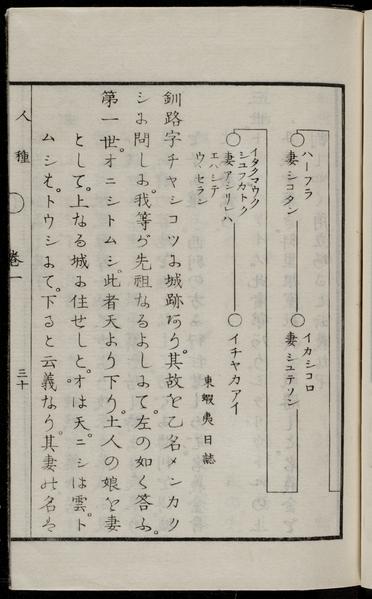 ハーフラ
妻シコタン
イカシコロ
妻シユテノン
イタクマウク
シユフカトク
妻アシリレハ
エハシテ
ウヘセラン
イチャカアイ
東蝦夷日誌
釧路字チャシコツよ城跡あり。其故を乙名メンカク
シよ問しよ。我等ガ先祖なるよしよて。左の如く答ふ。
第一世。オニシトムシ。此者天より下り。土人の娘を妻
として。上なる城よ住せしと。オは天。ニシは雲。ト
ムシも。トウシよて。下ると云義なり。其妻の名を
人種
卷一
三十